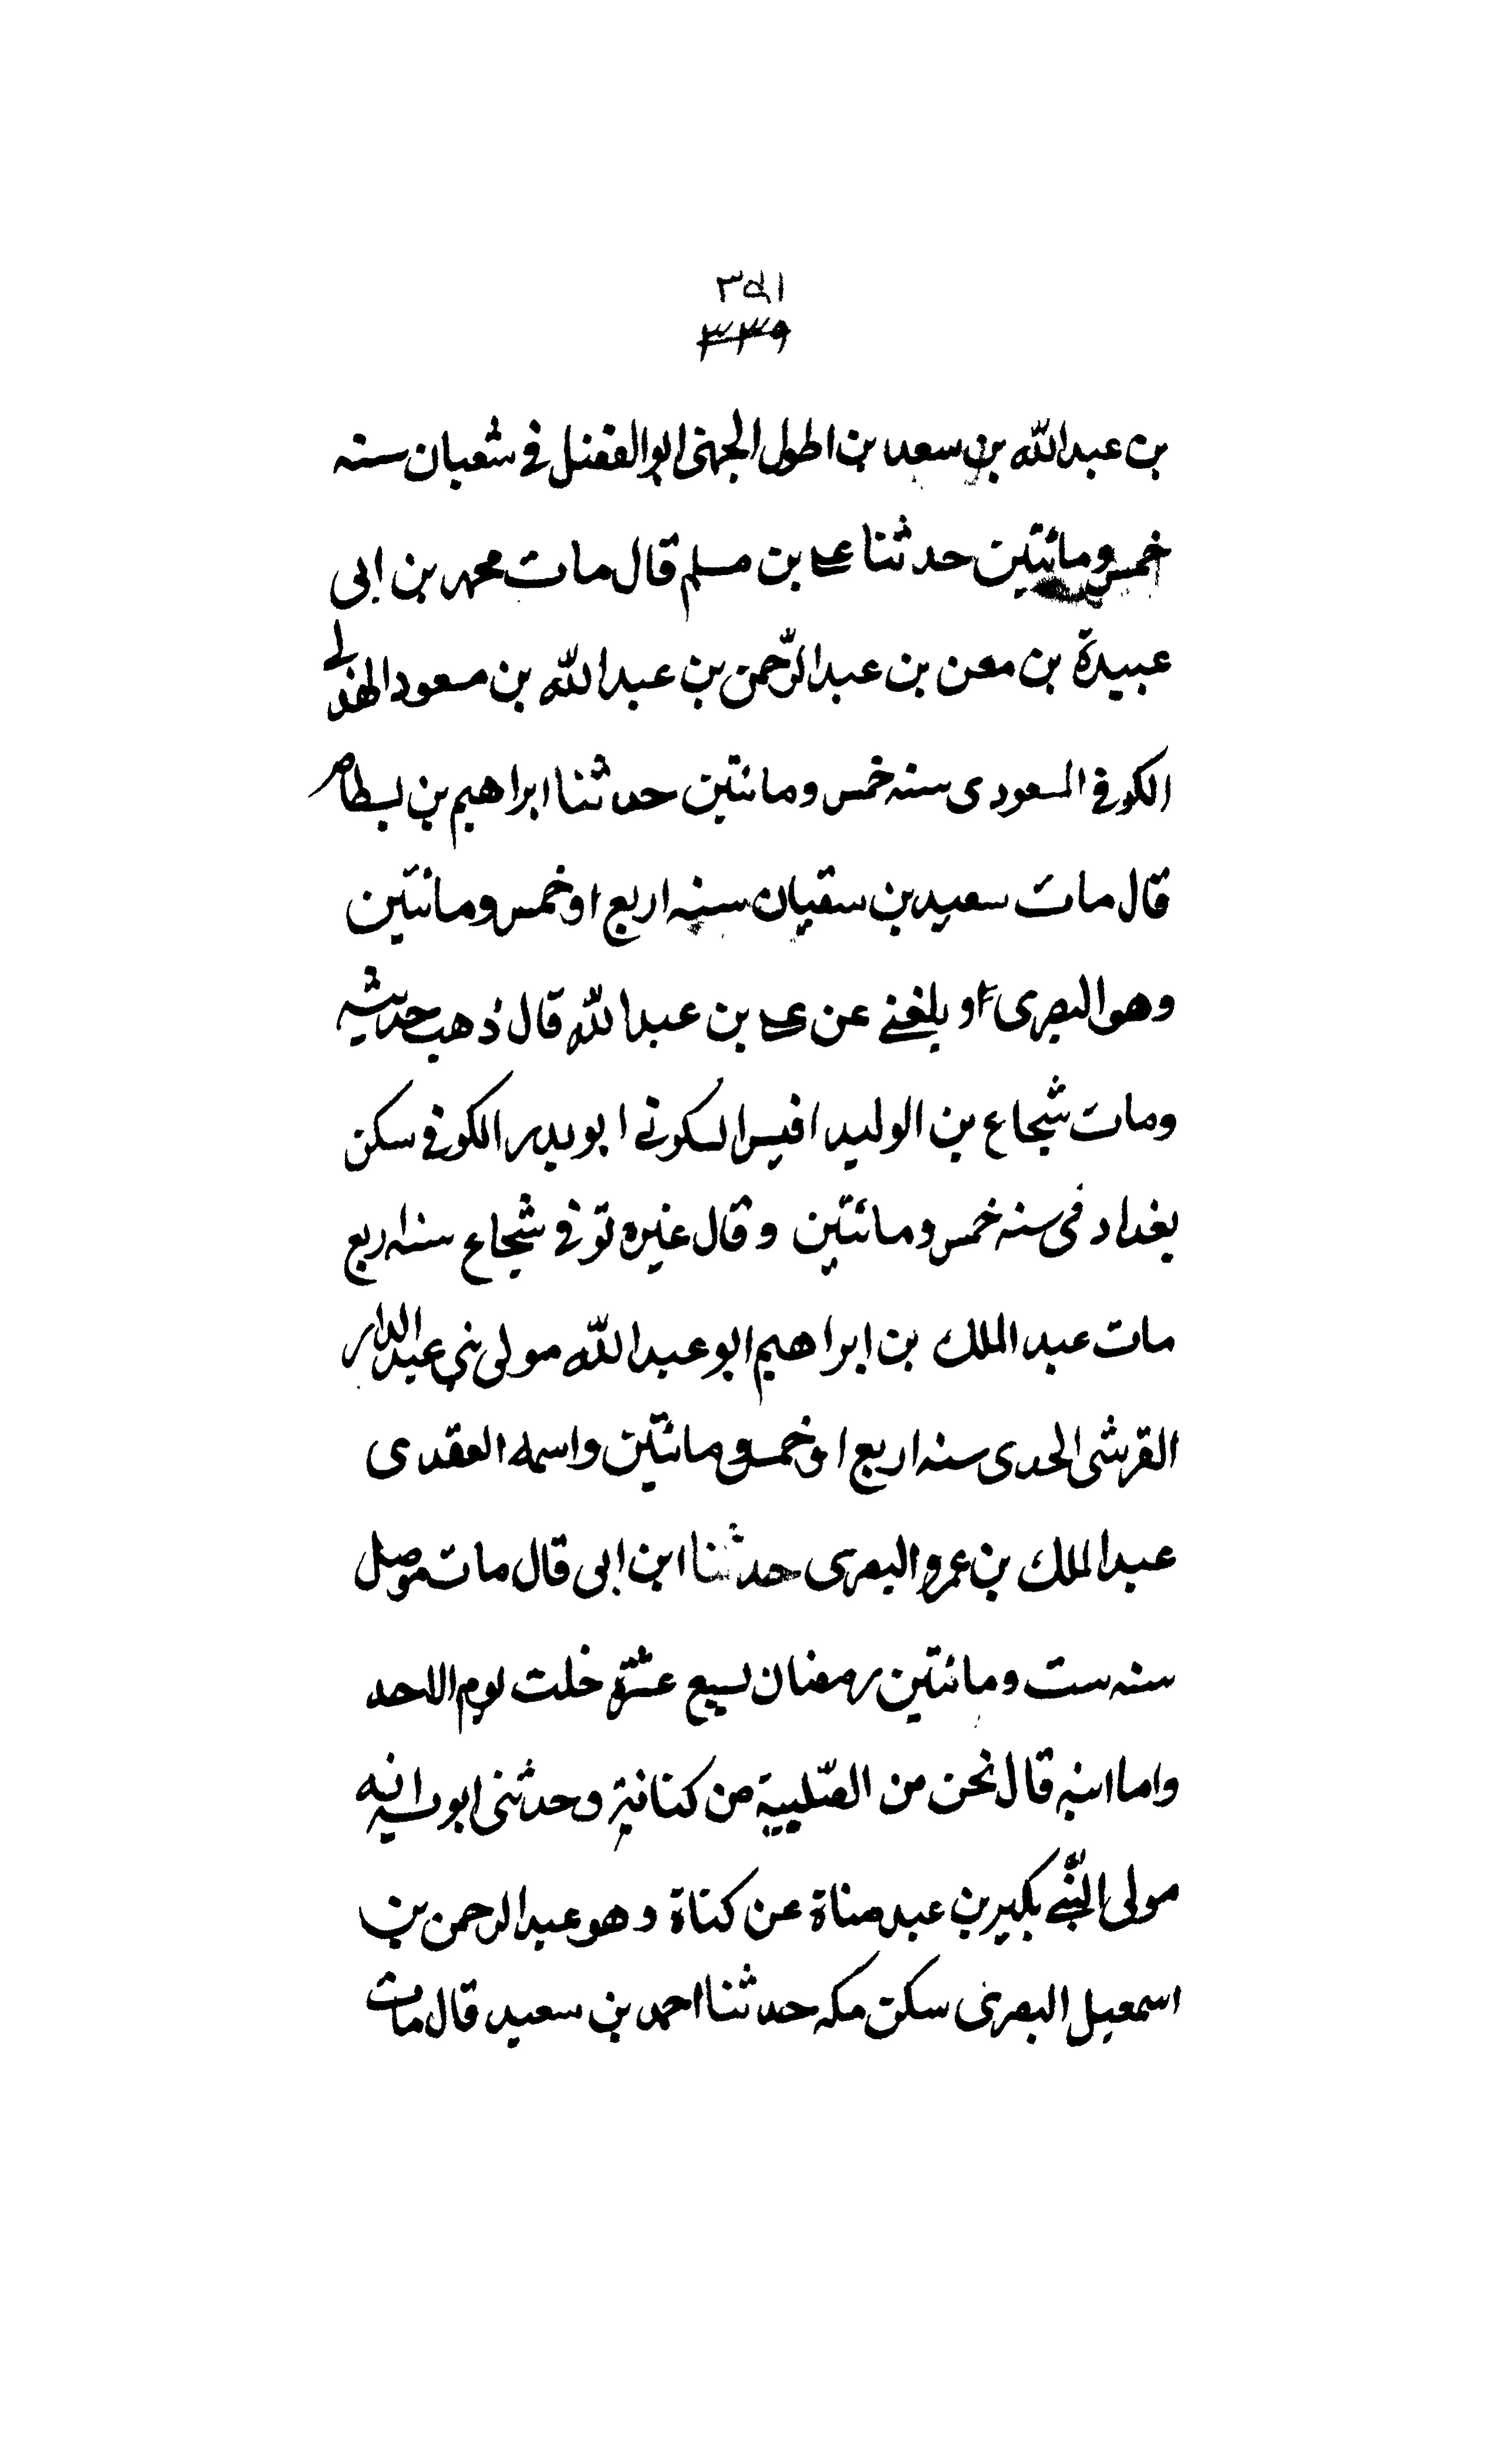 ٣٥١
٣٣٩
بن عبدالله بن سعد بن اطول الجهنى ابو الفضل فى شعبان سنه
خمس ومائتين حدثنا على بن مسلم قال مات محمد بن ابى
عبيدة بن معن بن عبدالرّحمن بن عبدالله بن مسعود الهذلى
الكوفى المسعودى سنه خمس ومائتين حدثنا ابراهيم بن بسطام
قال مات سعيد بن سفيان سنه اربع او خمس ومائتين
وهو البصرى او بلغنى عن على بن عبدالله قال ذهب حديثه
ومات شجاع بن الوليد افيس السكونى ابو بدر الكوفى سكن
بغداد فى سنه خمس ومائتين وقال غيره توفى شجاع سنه اربع
مات عبد الملك بن ابراهيم ابو عبدالله مولى بنى عبد الدار
القرشى الجدى سنه اربع او خمس ومائتين واسمه العقدى
عبدالملك بن عمرو البصرى حدثنا ابن ابى قال مات مومل
سنه ست ومائتين رمضان لسبع عشرة خلت يوم الاحد
واما ابنه قال نحن من الصّليبية من كنانة وحدثنى ابو انه
مولى بكير بن عبد مناة عن كناة وهو عبدالرحمن بن
اسمعيل البصرى سكن مكه حدثنا احمد بن سعيد قال مات